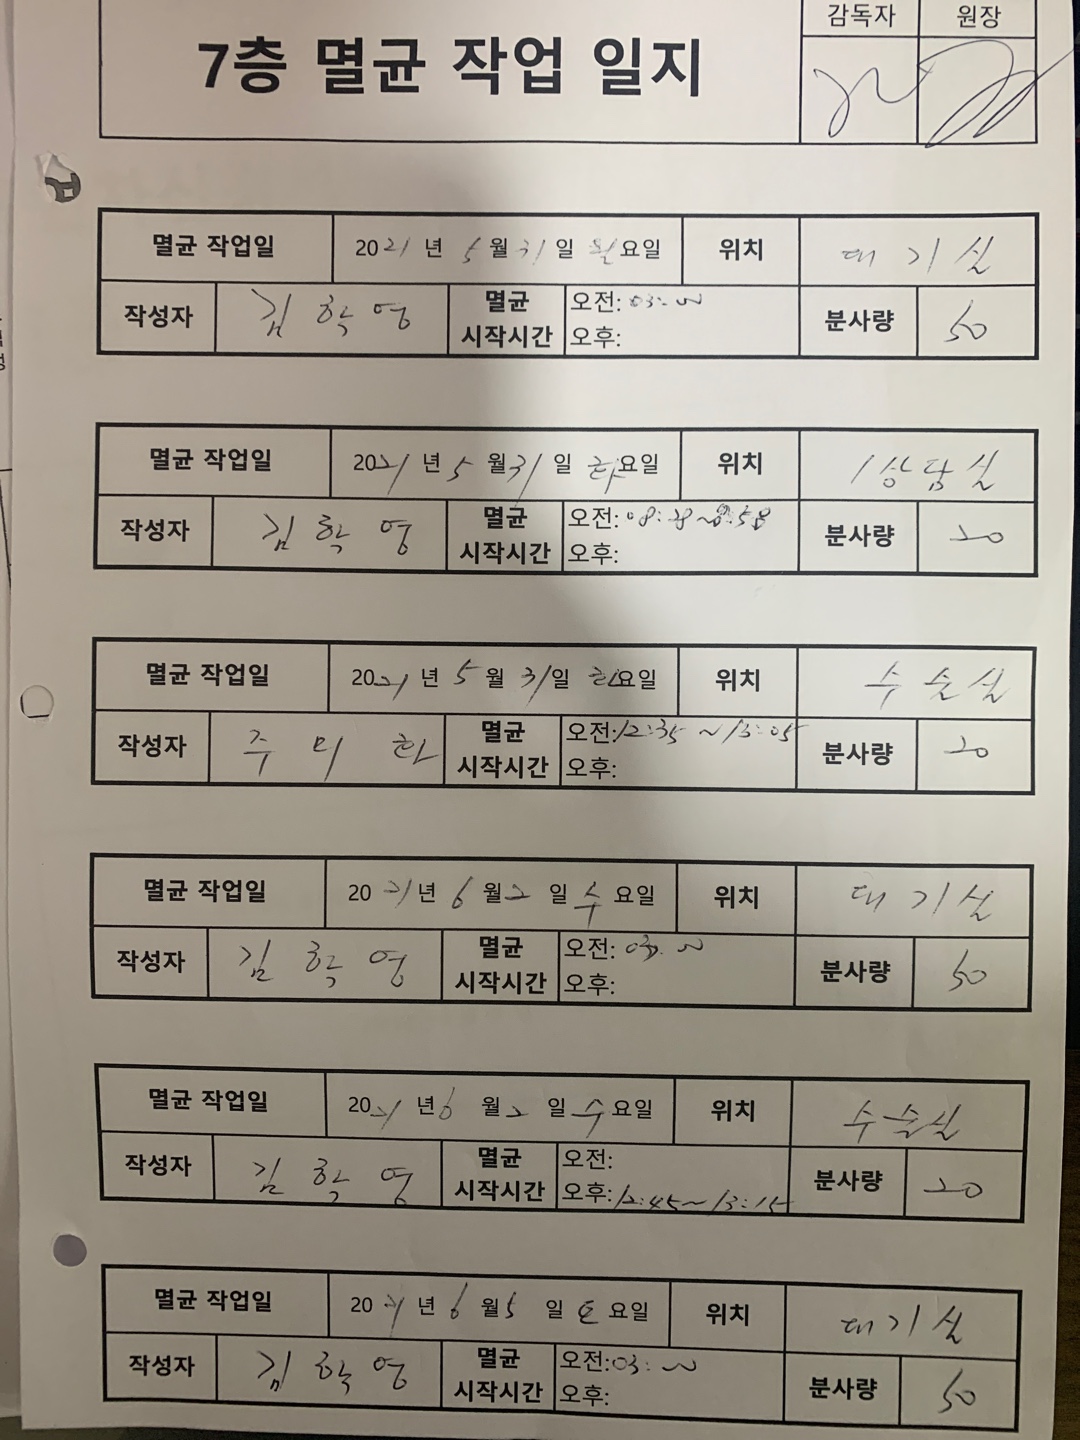 감독자 원장
7층 멸균 작업 일지
멸균 작업일 2021 년 5 월 31 일 월요일 위치 대기실
작성자 김학영 멸균 시작시간 오전: 03: 분사량 50
오후:
멸균 작업일 2021 년 5 월 31 일 화요일 위치 1상담실
작성자 김학영 멸균 시작시간 오전: 08:28~8:58 분사량 20
오후:
멸균 작업일 2021 년 5 월 31 일 화요일 위치 수술실
작성자 주미화 멸균 시작시간 오전: 12:35 ~ 13:05 분사량 20
오후:
멸균 작업일 2021 년 6 월 2 일 수요일 위치 대기실
작성자 김학영 멸균 시작시간 오전: 03: 분사량 50
오후:
멸균 작업일 2021 년 6 월 2 일 수요일 위치 수술실
작성자 김학영 멸균 시작시간 오전: 분사량 20
오후: 12:45~13:15
멸균 작업일 2021 년 6 월 5 일 토요일 위치 대기실
작성자 김학영 멸균 시작시간 오전: 03: 분사량 50
오후: